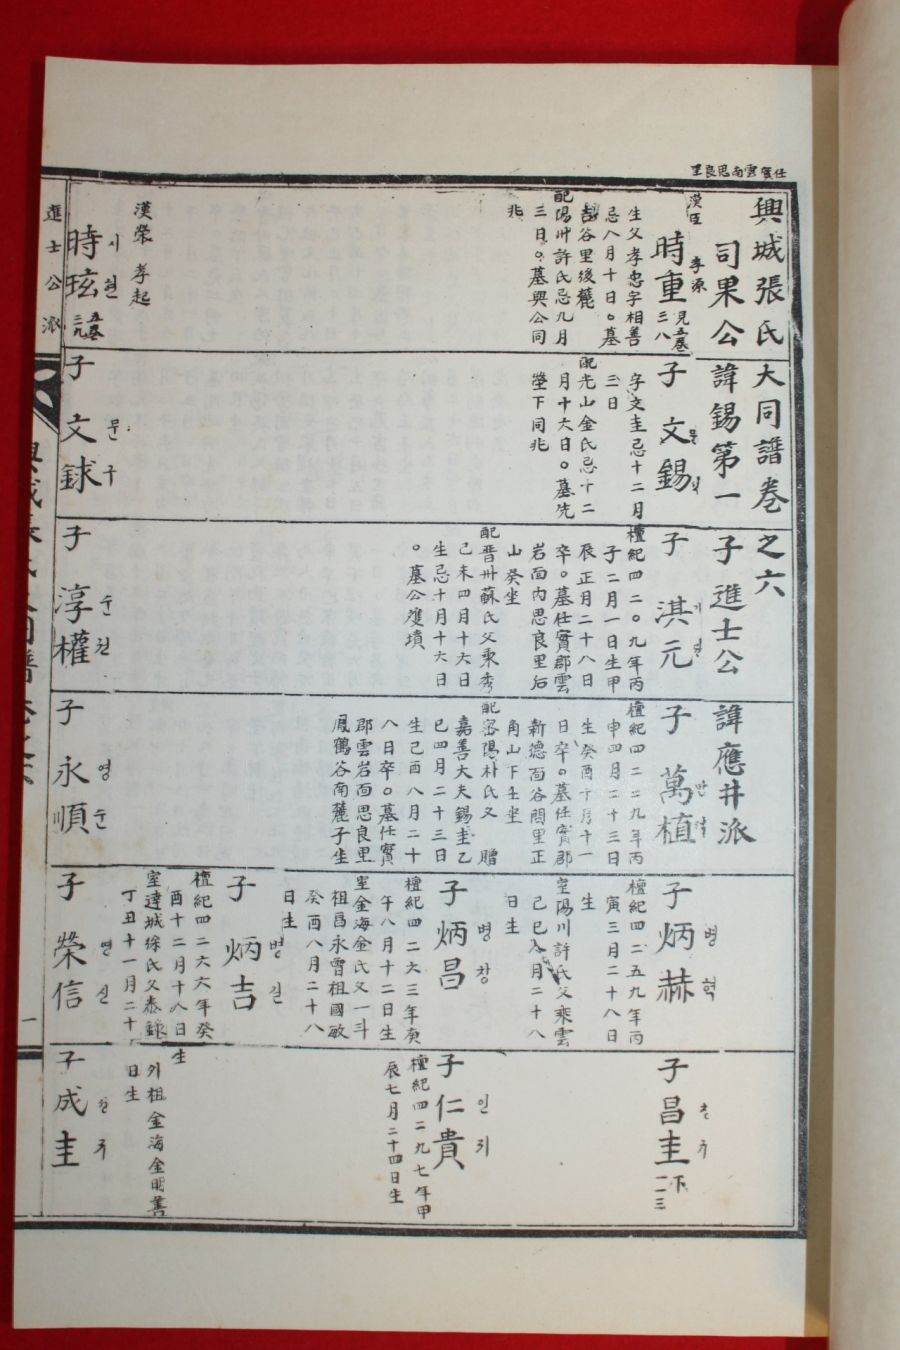 任實雲南思良里
興城張氏大同譜卷之六
司果公諱錫第一子進士公諱應井派
漢臣 孝源
時重 見五卷三八
生父孝忠字相善
忌八月十日○墓
谷里後麓
配陽川許氏忌九月
三日○墓與公同
兆
子 文錫 문석
字文圭忌十二月
三日
配光山金氏忌十二
月十六日○墓先
塋下同兆
子 淇元 기원
檀紀四二○九年丙
子二月一日生甲
辰正月二十八日
卒○墓任實郡雲
岩面內思良里后
山癸坐
配晋州蘇氏父秉秀
己未四月十六日
生忌十月十六日
○墓公雙墳
子 萬植 만식
檀紀四二二九年丙
申四月二十三日
生癸酉十月十一
日卒○墓任實郡
新德面谷間里正
角山下壬坐
配密陽朴氏父 贈
嘉善大夫錫圭乙
巳四月二十三日
生己酉八月二十
八日卒○墓任實
郡雲岩面思良里
鳳鶴谷南麓子坐
子 炳赫 병혁
檀紀四二五九年丙
寅三月二十八日
生
室陽川許氏父秉雲
己巳八月二十八
日生
子 炳昌 병창
檀紀四二六三年庚
午八月十二日生
室金海金氏父一斗
祖昌永曾祖國敏
癸酉八月二十八
日生
子 炳吉 병길
檀紀四二六六年癸
酉十二月十八日
生
室達城徐氏父泰錄
丁丑十一月二十
日生
子 昌圭 창규 下一一三
子 仁貴 인귀
檀紀四二九七年甲
辰七月二十四日生
外祖金海金明善
漢榮 孝起
時玹 시현 五卷三九
子 文銶 문구
子 淳權 순권
子 永順 영순
子 榮信 영신
子 成圭
進士公派
興城張氏大同譜卷之六
一